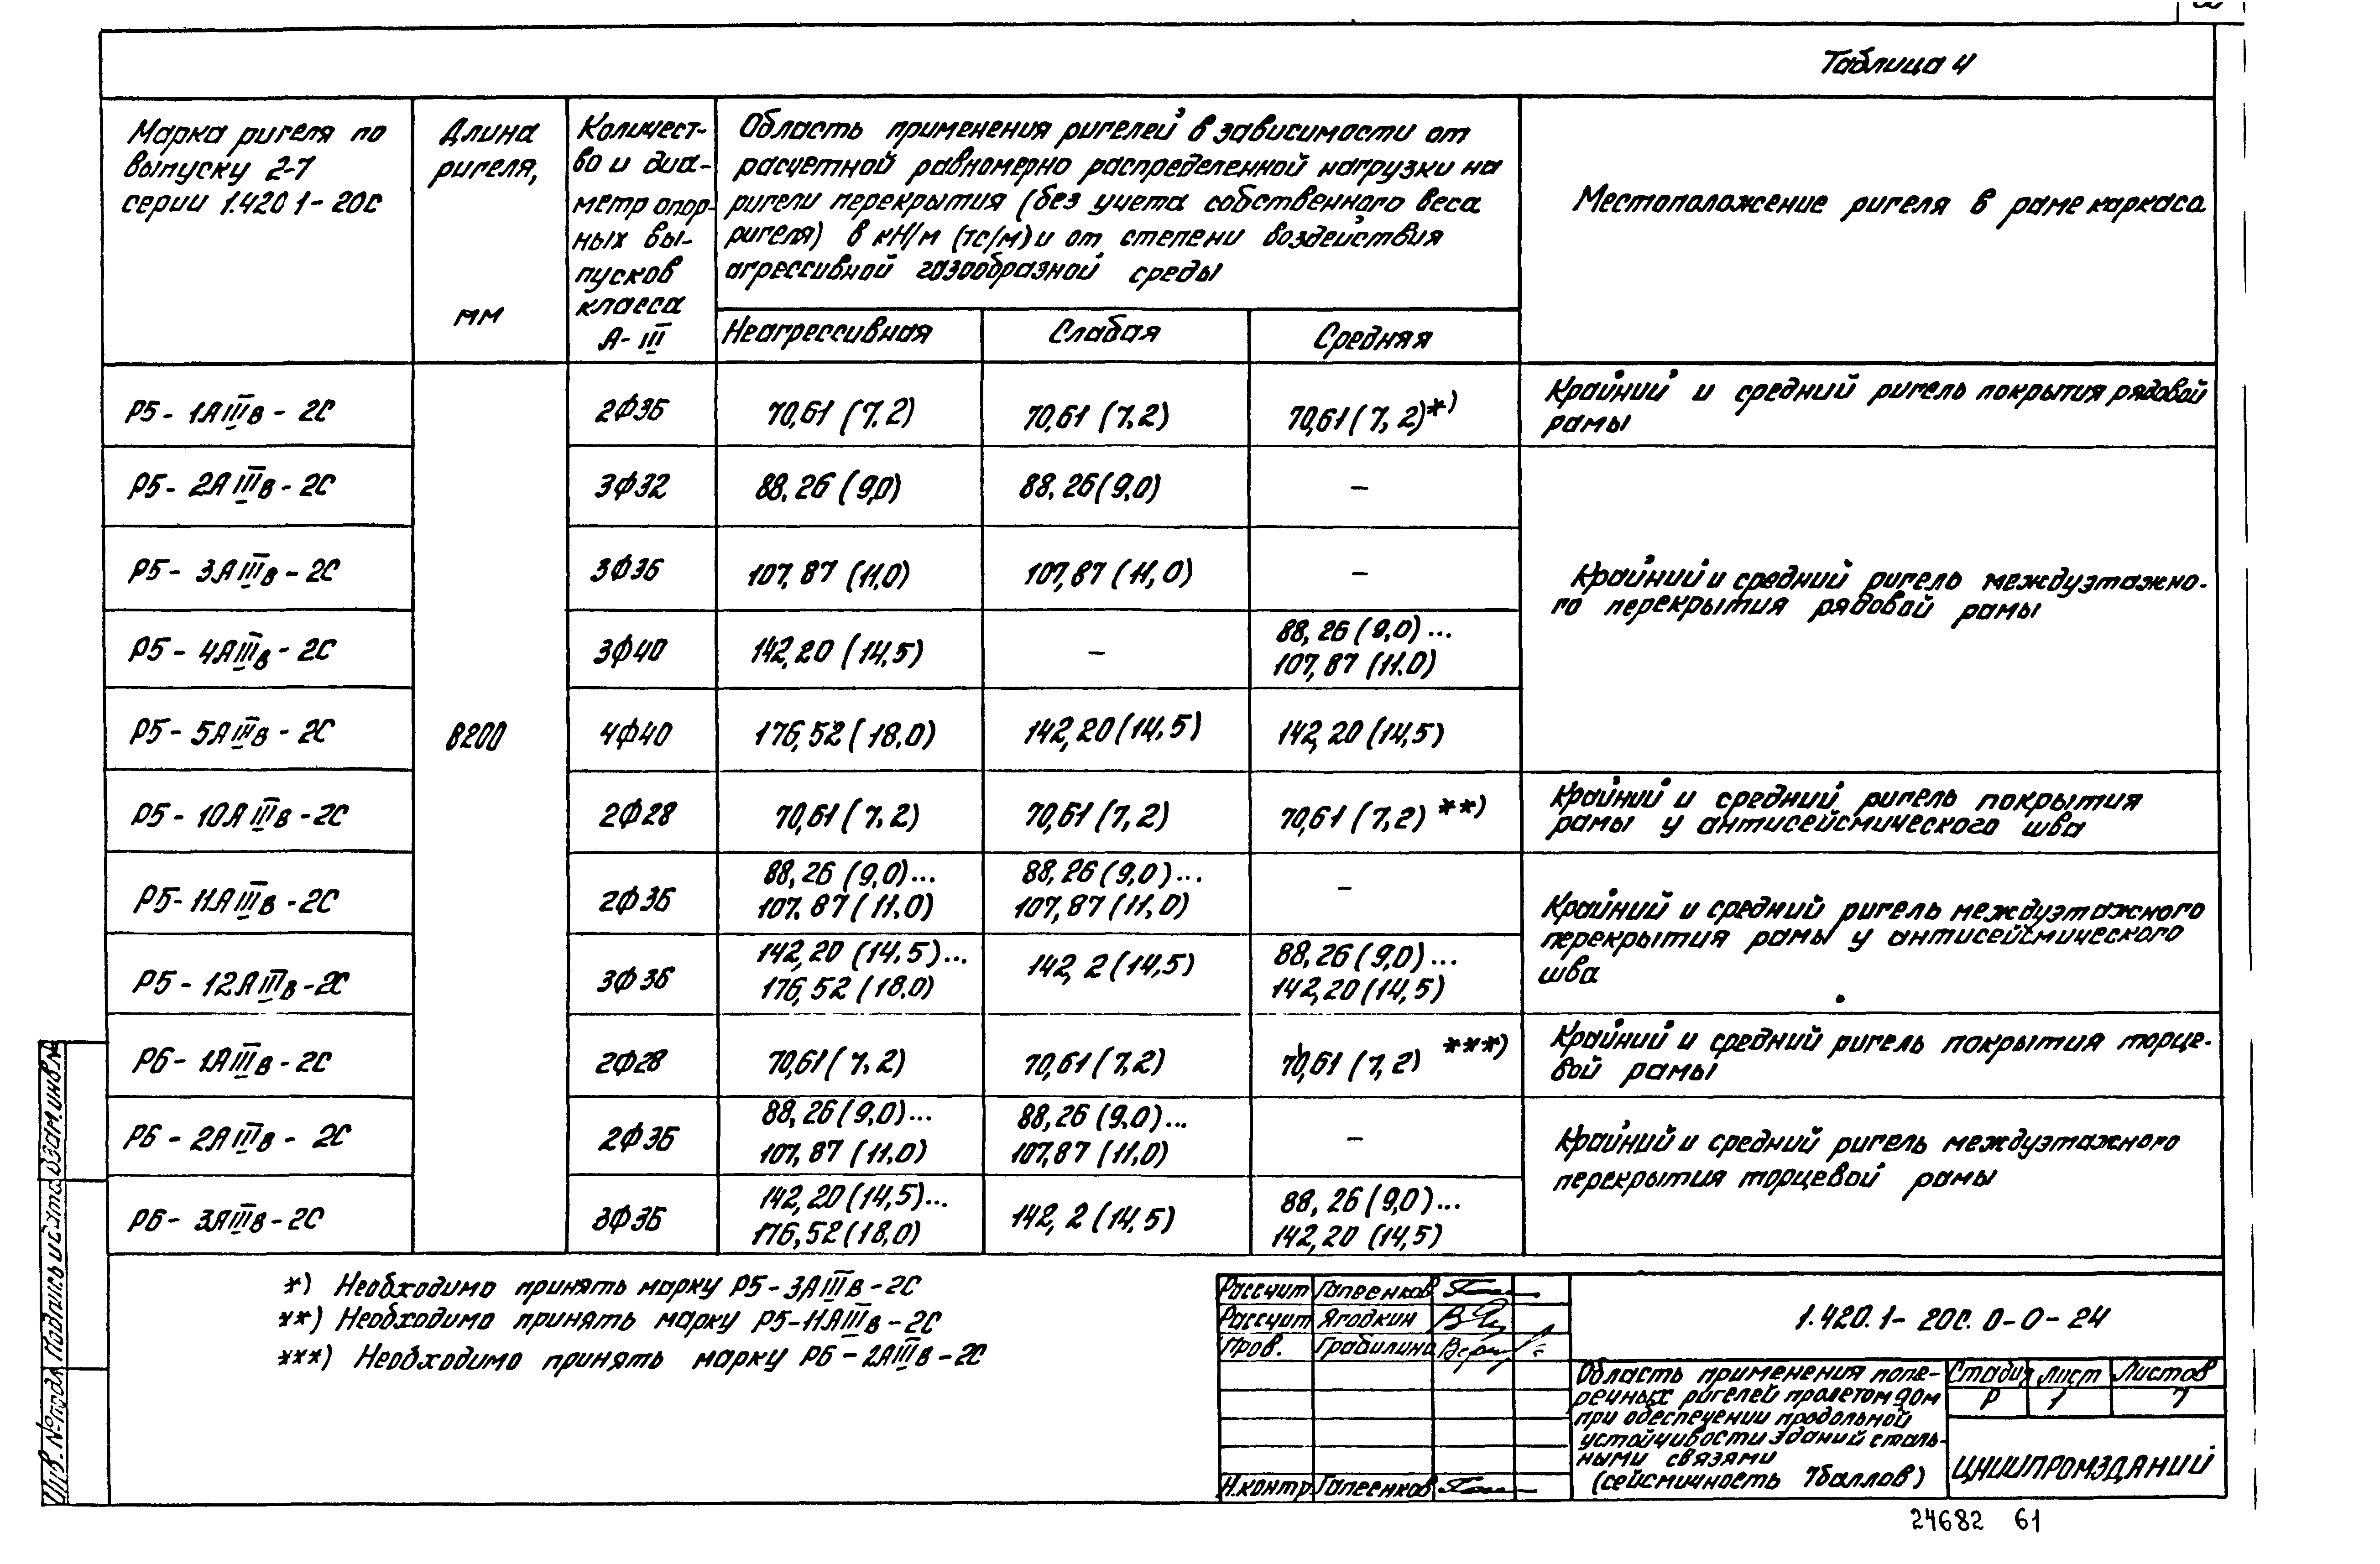 Таблица 4
Марка ригеля по
выпуску 2-7
серии 1.420 1-20С
Длина
ригеля,
мм
Количест-
во и диа-
метр опор-
ных вы-
пусков
класса
А-III
Область применения ригелей в зависимости от
расчетной равномерно распределенной нагрузки на
ригели перекрытия (без учета собственного веса
ригеля) в кН/м (тс/м) и от степени воздействия
агрессивной газообразной среды
Неагрессивная
Слабая
Средняя
Местоположение ригеля в раме каркаса
Р5-1АIIIв-2С
2Ф36
70,61 (7.2)
70,61 (7.2)
70,61 (7,2)*)
Крайний и средний ригель покрытия рядовой
рамы
Р5-2АIIIв-2С
3Ф32
88,26 (9,0)
88,26 (9,0)
–
Р5-3АIIIв-2С
3Ф36
107,87 (11,0)
107,87 (11,0)
–
Крайний и средний ригель междуэтажно-
го перекрытия рядовой рамы
Р5-4АIIIв-2С
3Ф40
142,20 (14,5)
–
88,26 (9,0)...
107,87 (11.0)
Р5-5АIIIв-2С
8200
4Ф40
176,52 (18,0)
142,20 (14,5)
142,20 (14,5)
Р5-10АIIIв-2С
2Ф28
70,61 (7,2)
70,61 (7,2)
70,61 (7,2) **)
Крайний и средний ригель покрытия
рамы у антисейсмического шва
Р5-11АIIIв-2С
2Ф36
88,26 (9,0)...
107.87 (11.0)
88,26 (9,0)...
107,87 (11,0)
–
Крайний и средний ригель междуэтажного
перекрытия рамы у антисейсмического
шва
Р5-12АIIIв-2С
3Ф36
142,20 (14,5)...
176,52 (18.0)
142,2 (14,5)
88,26 (9,0)...
142,20 (14,5)
Р6-1АIIIв-2С
2Ф28
70,61 (7,2)
70,61 (7,2)
70,61 (7,2) ***)
Крайний и средний ригель покрытия торце-
вой рамы
Р6-2АIIIв-2С
2Ф36
88,26 (9,0)...
107,87 (11.0)
88,26 (9,0)...
107,87 (11.0)
–
Крайний и средний ригель междуэтажного
перекрытия торцевой рамы
Р6-3АIIIв-2С
3Ф36
142,20 (14,5)...
176,52 (18,0)
142,2 (14,5)
88,26 (9,0)...
142,20 (14,5)
*) Необходимо принять марку Р5-3АIIIв-2С
**) Необходимо принять марку Р5-11АIIIв-2С
***) Необходимо принять марку Р6-2АIIIв-2С
Рассчит Гапеенков
Рассчит Ягодкин
Пров. Грабилина
Н.контр. Гапеенков
1.420.1-20С.0-0-24
Область применения попе-
речных ригелей пролетом 9ом
при обеспечении продольной
устойчивости зданий сталь-
ными связями
(сейсмичность 7баллов)
Стадия Лист Листов
Р 1 7
ЦНИИПРОМЗДАНИЙ
Инв.№подл Подпись и дата Взам.инв.№
24682 61